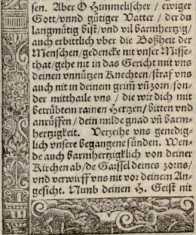 sen. Aber O Himmelischer / ewiger
Gott / vnnd gütiger Vatter / der du
langmütig bist / vnd vil barmhertzig /
auch erbittlich vber die Boßheit der
Menschen, gedencke nit vnser Misse-
that / gehe nit in das Gericht mit vns
deinen vnnützen Knechten / straf vns
auch nit in deinem grim̃ vñ zorn / son-
der mitthaile vns / die wir dich mit
betrübtem rainen Hertzen / bitten vnd
anrüffen / dein milde gnad vñ barm-
hertzigkeit. Verzeihe vns genedig-
lich vnsere begangene sünden. Wen-
de auch barmhertzigklich von deiner
Kirchen ab / de Gaissel deines zorns /
vnd verwürff vns nit vor deinem An-
gesicht. Nimb deinen H. Geist nit